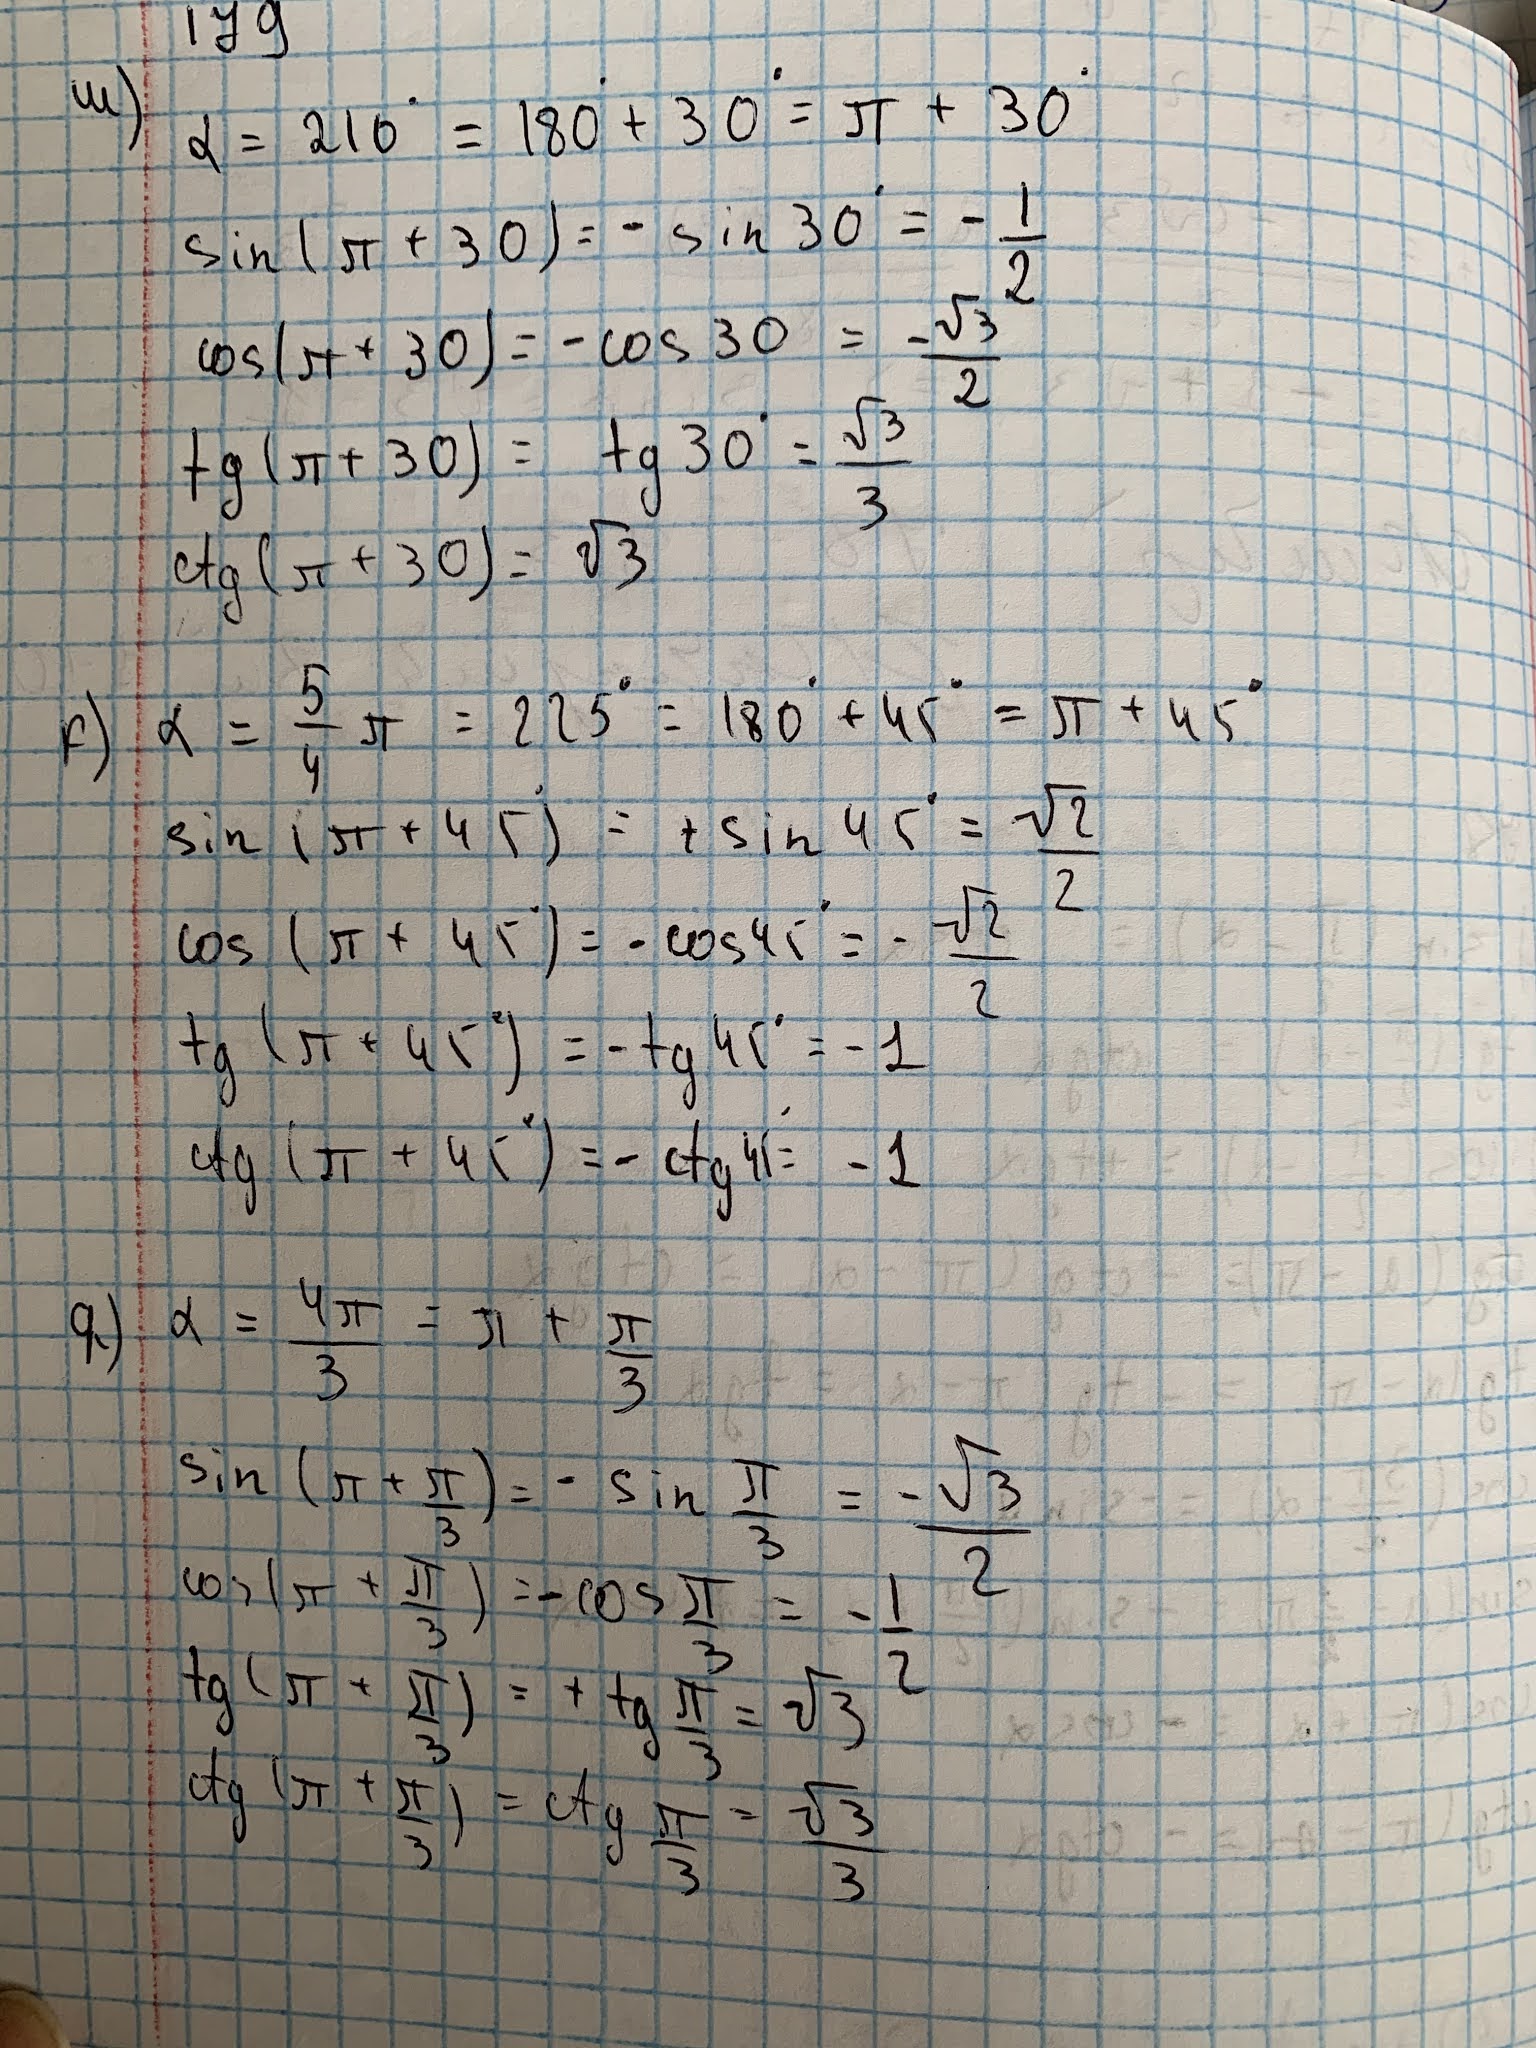 179
ա) α = 210° = 180° + 30° = π + 30°
sin(π + 30) = - sin 30° = - 1/2
cos(π + 30) = - cos 30 = -√3/2
tg(π + 30) = tg 30° = √3/3
ctg(π + 30) = √3
բ) α = 5/4 π = 225° = 180° + 45° = π + 45°
sin (π + 45°) = + sin 45° = √2/2
cos (π + 45°) = - cos 45° = - √2/2
tg (π + 45°) = - tg 45° = - 1
ctg (π + 45°) = - ctg 45° = - 1
գ) α = 4π/3 = π + π/3
sin (π + π/3) = - sin π/3 = - √3/2
cos(π + π/3) = - cos π/3 = - 1/2
tg(π + π/3) = + tg π/3 = √3
ctg(π + π/3) = ctg π/3 = √3/3